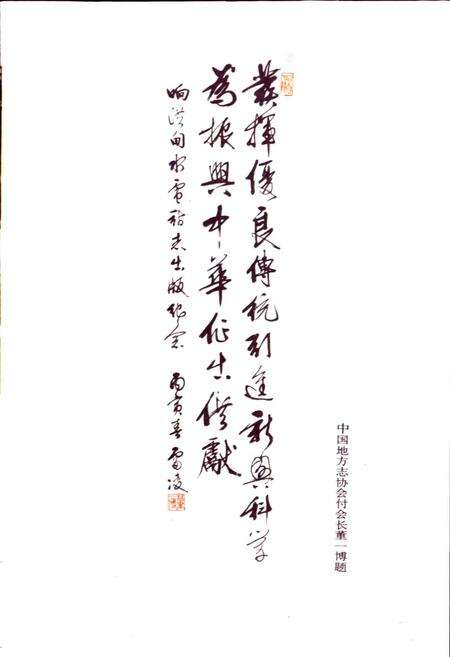 發揮優良傳統引進新興科学
為振興中華作出貢獻
响洪甸水電站志出版纪念
丙寅春
中国地方志协会付会长董一博题